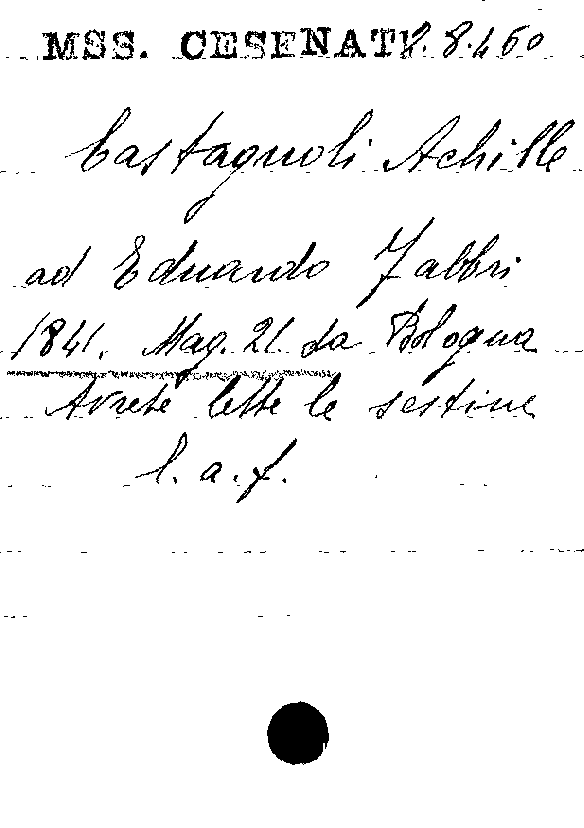 MSS. CESENATI 2.8.460
Castagnoli Achille
ad Eduardo Fabbri
1841. Mag. 21 da Bologna
Avrete lette le sestine
l. a. f.